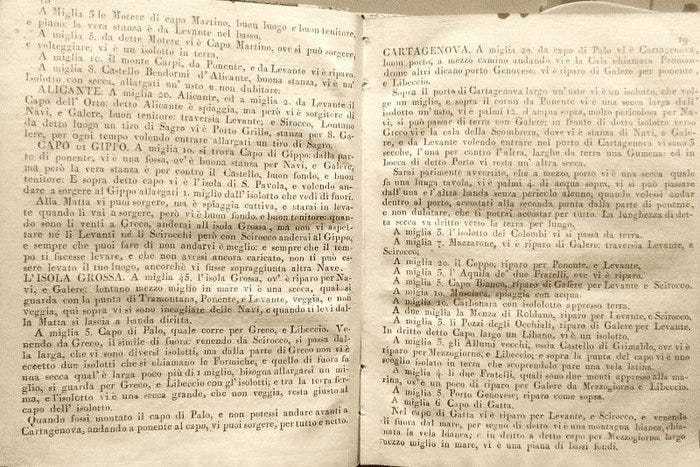 18
A Miglia 5 le Motere di capo Martino, buon luogo e buon tenitore,
e piano: la vera stanza è da Levante nel basso.
A miglia 5. da dette Motere vi è Capo Martino, ove si può sorgere,
e volteggiare; vi è un isolotto in terra.
A miglia 10. il monte Carpi, da Ponente, e da Levante vi è riparo.
A miglia 8. Castello Bendormi d'Alicante, buona stanza, vi è un'
Isolotto con secca, allargati un' usto e non dubitare.
ALICANTE. A miglia 20. Alicante, ed a miglia 2. da Levante il
Capo dell' Orto: detto Alicante è spiaggia, ma però vi è sorgitore di
Navi, e Galere, buon tenitore: traversia Levante, e Sirocco. Lontano
da detto luogo un tiro di Sagro vi è Porto Grille, stanza per 8. Ga-
lere, per ogni tempo volendo entrare allargati un tiro di Sagro.
CAPO DI GIPPO. A miglia 10. si trova Capo di Gippo: dalla par-
te di ponente, vi è una fossa, ov' è buona stanza per Navi, e Galere,
ma però la vera stanza è per contro il Castello, buon fondo, e buon
tenitore: E sopra detto capo vi è l'Isola di S. Pavola, e volendo an-
dare a sorgere al Gippo allargati 1. miglio dall'isolotto che vedi di fuori.
Alla Matta vi puoi sorgere, ma è spiaggia cattiva, e starai in leva-
te quando li vai a sorgere, però vi è buon fondo, e buon tenitore: quan-
do sono li venti a Greco, anderai all isola Grossa, ma non vi aspet-
tare nè li Levanti nè li Scirocchi però con Scirocco anderai al Gippo,
e sempre che puoi fare di non andarvi è meglio: e sempre che il tem-
po ti facesse levare, e che non avessi ancora caricato, non ti può es-
sere levato il tuo luogo, ancorchè vi fusse sopraggiunta altra Nave.
L'ISOLA GROSSA. A miglia 45. l'isola Grossa, ov' è riparo per Na-
vi, e Galere: lontano mezzo miglio in mare vi è una secca, qual si
guarda con la punta di Tramontana, Ponente, e Levante, veggia, e non
veggia, qui sopra vi si sono incagliate delle Navi, e quando ti levi dal-
la Matta si lascia a banda diritta.
A miglia 5. Capo di Palo, quale corre per Greco, e Libeccio. Ve-
nendo da Greco, il simile di fuora: venendo da Scirocco, si passa dal-
la larga, che vi sono diversi isolotti, ma dalla parte di Greco non vi è
eccetto due isolotti che si chiamano le Formiche, e quello di fuora fa
una secca qual' è larga poco più di 1 miglio, bisogna allargarsi un mi-
glio, si guarda per Greco, e Libeccio con gl'isolotti; e tra la terra fer-
ma, e l'isolotto vi è una secca grande, che non veggia, resta giusto al
capo dell' isolotto.
Quando fussi montato il capo di Palo, e non potessi andare avanti a
Cartagenova, andando a ponente al capo, vi puoi sorgere, per tutto e netto.
19
CARTAGENOVA. A miglia 20. da capo di Palo vi è Cartagenova,
buon porto, a mezzo camino andando vi è la Cala chiamata Promon-
done altri dicano porto Genovese: vi è riparo di Galere per ponente
e Libeccio.
Sopra il porto di Cartagenova largo un'usto vi è un isolotto, che vol-
ge un miglio, e sopra il corno da Ponente vi è una secca larga dall'
isolotto un'usto, vi è palmi 12. d'acqua sopra, molto pericolosa per Na-
vi, si può passar di terra con Galere: in fronte di detto isolotto verso
Greco vi è la cala della Scombrera, dove vi è stanza di Navi, e Gale-
re, e da Levante volendo entrare nel porto di Cartagenova vi sono 3
secche, l'una per contro l'altra, larghe da terra una Gumena: ed in
bocca di detto Porto vi resta un altra secca.
Sarai parimente avvertito, che a miglio, porto vi è una secca quale
fa una lunga tavola, vi è palmi 4. di acqua sopra, vi si può passare
dall'una e l'altra banda senza pericolo alcuno, quando volessi andar
dentro al porto, accostati alla seconda punta dalla parte di ponente,
e non dubitare, che ti potrai accostar per tutto. La lunghezza di det-
ta secca va dritto verso la terra per lungo.
A miglia 3. l' isolotto dei Colombi vi si passa da terra.
A miglia 7. Mazzarone, vi è riparo di Galere: traversia Levante, e
Scirocco;
A miglia 20. il Coppo; riparo per Ponente, e Levante.
A miglia 3. l' Aquila de' due Fratelli, ove vi è riparo.
A miglia 5. Capo Bianco, riparo di Galere per Levante e Scirocco.
A miglia 10. Mosciaca, spiaggia con acqua.
A miglia 16 Carbonara con isolotto appresso terra.
A miglia due la Menza di Roldano, riparo per Levante, e Scirocco.
A miglia 3. li Pozzi degli Occhiali, riparo di Galere per Levante.
In dritto detto Capo largo un Libano, vi è un isolotto.
A miglia 5. gli Allumi vecchi, ossia Castello di Grimaldo, ove vi è
riparo per Mezzogiorno, e Libeccio; e sopra la punta del capo vi è uno
scoglio isolato in terra che scoprendolo pare una vela latina.
A miglia 4. li due Fratelli, quali sono due monti appresso alla ma-
rina, ov' è un poco di riparo per Galere da Mezzogiorno e Libeccio.
A miglia 5. Porto Genovese, riparo come sopra.
A miglia 6 Capo di Gatta.
Nel capo di Gatta vi è riparo per Levante, e Scirocco, e venendo
di fuora dal mare, per segno di detto vi è una montagna bianca, chia-
mata la vela bianca; e in dritto a detto capo per Mezzogiorno, largo
mezzo miglio in mare, vi è una piana di bassi fondi.